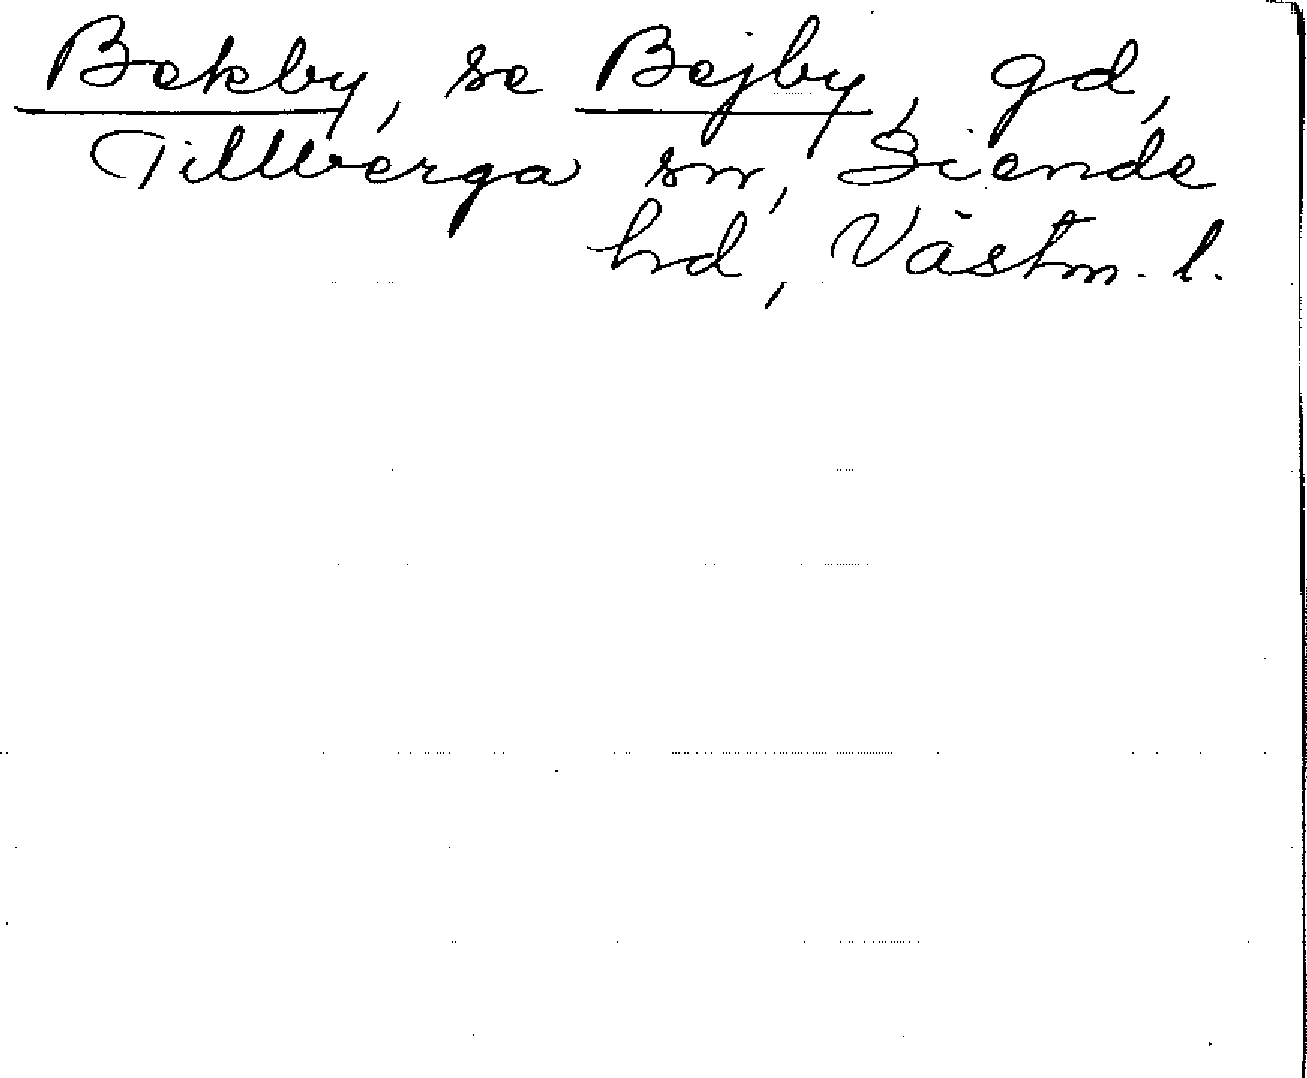 Bekby, se Bejby, gd,
Tillberga sn, Siende
hd, Västm. l.